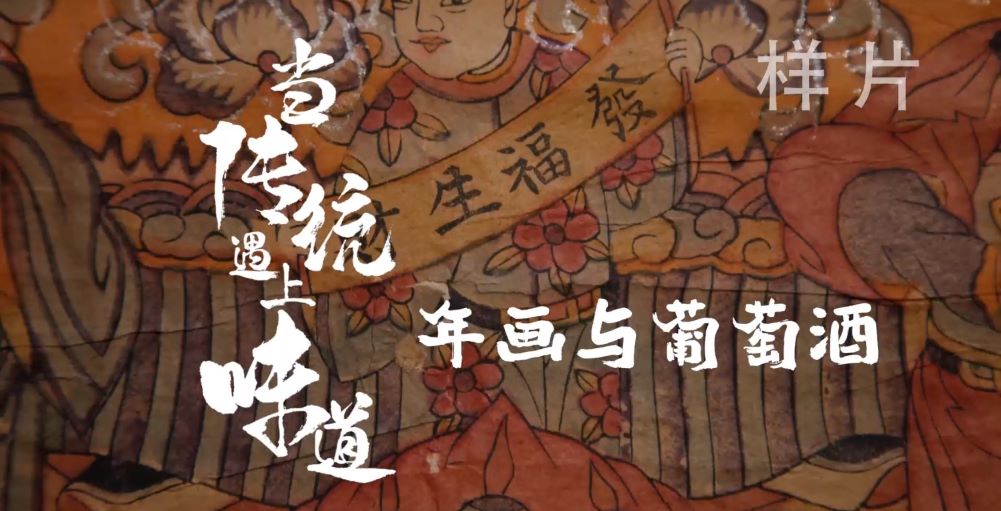 样片
當传统遇上味道
發福生
年画与葡萄酒